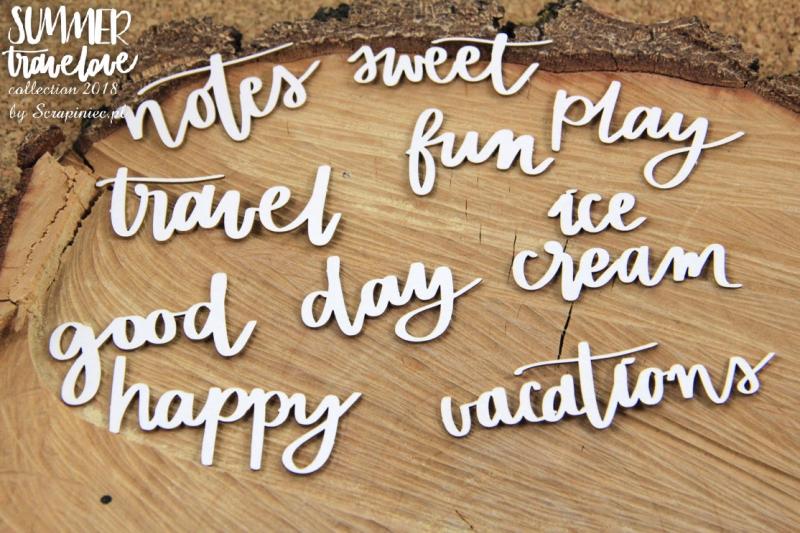 SUMMER
travelove
collection 2018
by Scrapiniec.pl
notes
sweet
fun
play
travel
ice
cream
good
day
happy
vacations